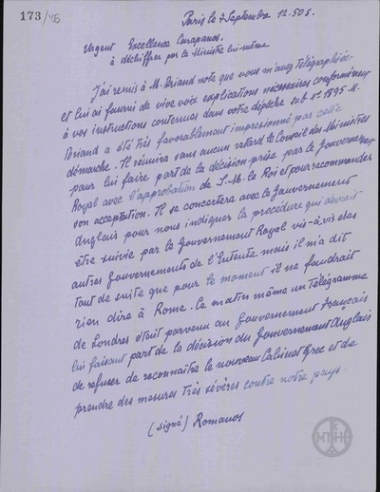 173/45
Paris le 7 Septembre 12.50 s.
Urgent Excellence Carapanos.
à déchiffrer par le Ministre lui-même
J'ai remis à M. Briand note que vous m'avez télégraphiée
et lui ai fourni de vive voix explications nécessaires conformément
à vos instructions contenues dans votre dépêche sub no 1895 M.
Briand a été très favorablement impressionné par cette
démarche. Il réunira sans aucun retard le Conseil des Ministres
pour lui faire part de la décision prise par le gouvernement
Royal avec l'approbation de S.M. le Roi et pour recommander
son acceptation. Il se concertera avec le Gouvernement
Anglais pour nous indiquer la procédure qui devrait
être suivie par le Gouvernement Royal vis-à-vis des
autres Gouvernements de l'Entente mais il m'a dit
tout de suite que pour le moment il ne faudrait
rien dire à Rome. Ce matin même un télégramme
de Londres était parvenu au Gouvernement Français
lui faisant part de la décision du Gouvernement Anglais
de refuser de reconnaître le nouveau Cabinet Grec et de
prendre des mesures très sévères contre notre pays.
(signé) Romanos